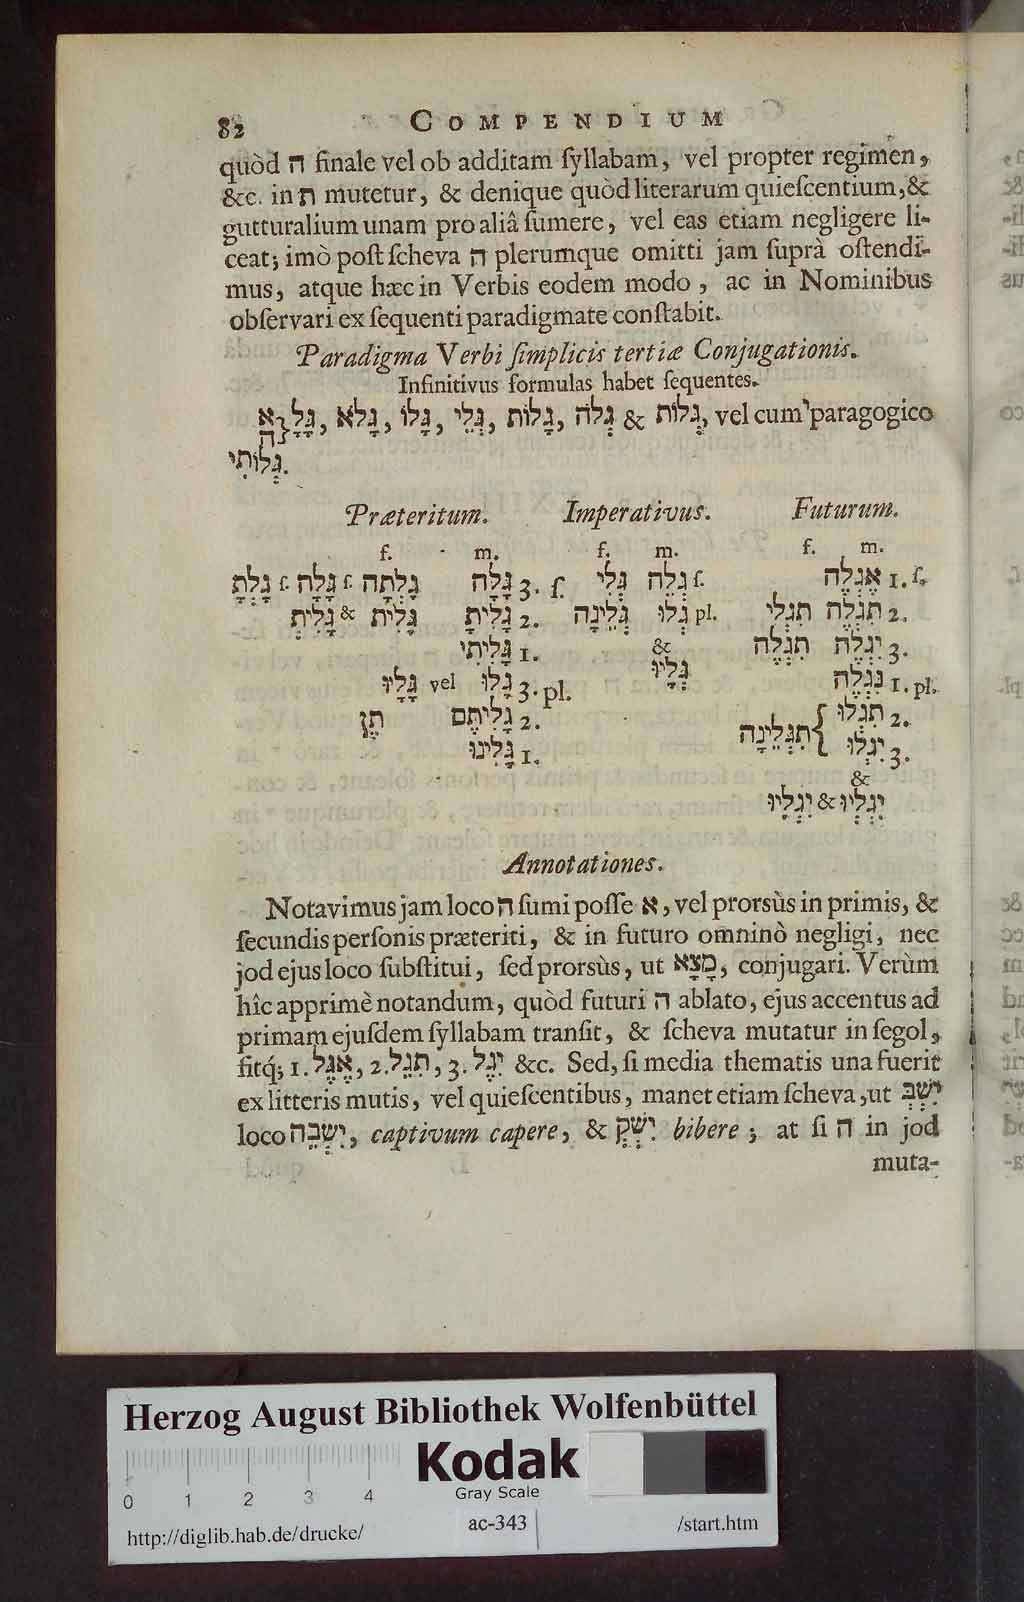 82 COMPENDIUM
quòd ה finale vel ob additam ſyllabam, vel propter regimen,
&c. in ת mutetur, & denique quòd literarum quieſcentium, &
gutturalium unam pro aliâ ſumere, vel eas etiam negligere li-
ceat; imò poſt ſcheva ה plerumque omitti jam ſuprà oſtendi-
mus, atque hæc in Verbis eodem modo, ac in Nominibus
obſervari ex ſequenti paradigmate conſtabit.
Paradigma Verbi ſimplicis tertiæ Conjugationis.
Infinitivus formulas habet ſequentes.
גָּלָא ה, גָּלֹא, גָּלוֹ, גְּלֵי, גָּלוֹת, גְּלֹה & גְּלוֹת, vel cum י paragogico
גְּלוֹתִי.
Præteritum. Imperativus. Futurum.
f. m. f. m. f. m.
גָּלָת ſ. גָּלָה ſ. גָּלְתָה גָּלָה 3. ſ. גְּלִי גְּלֵה ſ. אֶגְלֶה 1. ſ.
גָּלִית & גָּלִית גָּלִיתָ 2. גְּלֵינָה גְּלוּ pl. תִּגְלִי תִּגְלֶה 2.
גָּלִיתִי 1. & תִּגְלֶה יִגְלֶה 3.
גָּלָיוּ vel גָּלוּ 3. pl. גְּלָיוּ נִגְלֶה 1. pl.
תֶן גְּלִיתֶם 2. תִּגְלֶינָה { תִּגְלוּ 2.
גָּלִינוּ 1. יִגְלוּ 3.
&
יִגְלָיוּ & יִגְלְיוּ
Annotationes.
Notavimus jam loco ה ſumi poſſe א, vel prorsùs in primis, &
ſecundis perſonis præteriti, & in futuro omninò negligi, nec
jod ejus loco ſubſtitui, ſed prorsùs, ut מָצָא, conjugari. Verùm
hîc apprimè notandum, quòd futuri ה ablato, ejus accentus ad
primam ejuſdem ſyllabam tranſit, & ſcheva mutatur in ſegol,
fitq́; 1. אֶגֶל, 2. תִּגֶל, 3. יִגֶל &c. Sed, ſi media thematis una fuerit
ex litteris mutis, vel quieſcentibus, manet etiam ſcheva, ut יִשְׁבְּ
loco יִשְׁבֶּה, captivum capere, & יִשְׁקְ bibere; at ſi ה in jod
muta-
Herzog August Bibliothek Wolfenbüttel
Kodak
Gray Scale
0 1 2 3 4
http://diglib.hab.de/drucke/ ac-343 /start.htm